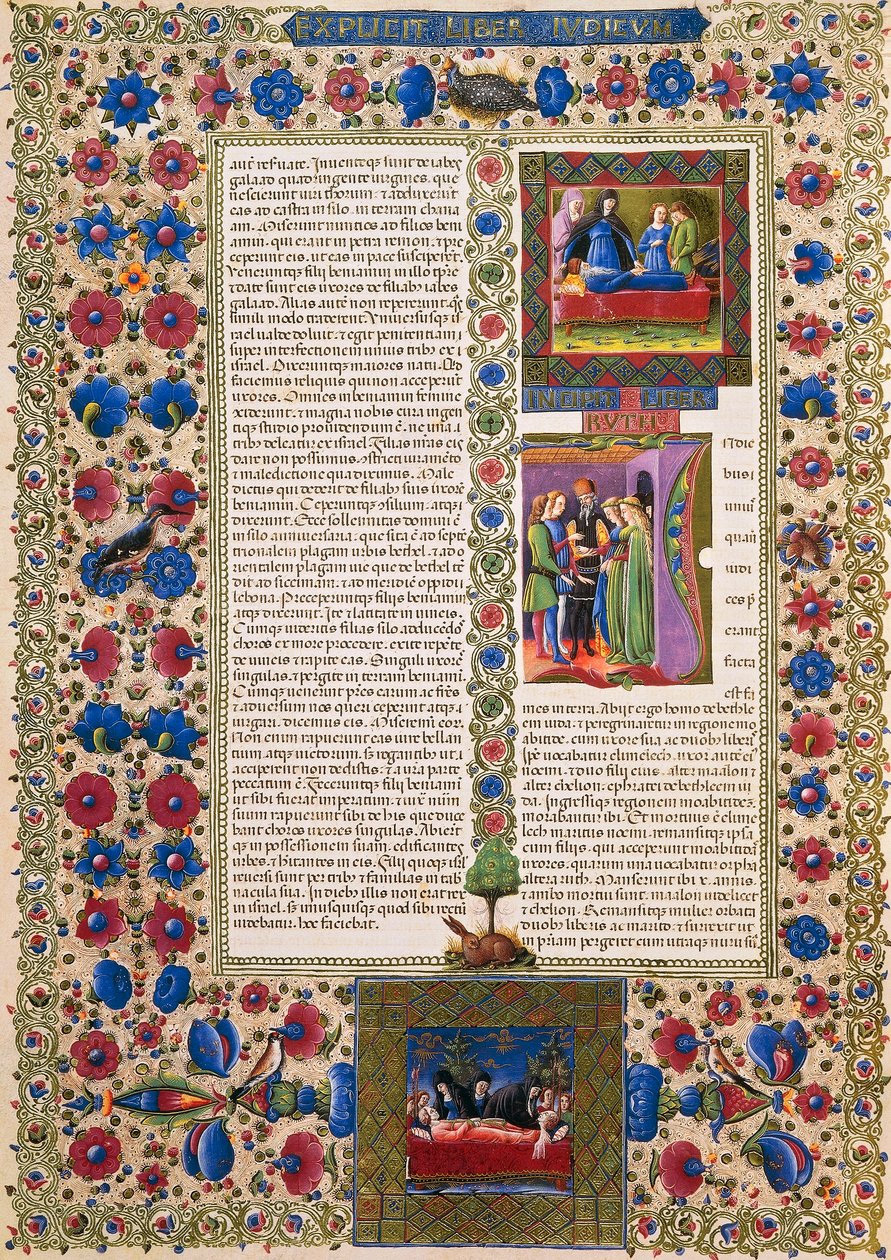 EXPLICIT LIBER IVDICVM
aut refutare. Inventeqȝ sunt de iabes
galaad quadringente virgines. que
nescierunt viri thorum: ⁊ adduxerunt
eas ad castra in silo. in terram chana
am. Miserunt nuntios ad filios ben
iamin. qui erant in petra remon. ⁊ pre
ceperunt eis. ut eas in pace susciperent.
Veneruntqȝ filij beniamin in illo tpre
⁊ date sunt eis uxores de filiabȝ iabes
galaad. Alias autē non repererunt qs
simili modo traderent. Vniversusqȝ is
rael valde doluit. ⁊ egit penitentiam
super interfectionem unius tribȝ ex i
srael. Dixeruntqȝ maiores natu. Qd
faciemus reliquis qui non acceperunt
uxores. Omnes in beniamin femine
⁊ magna nobis cura ingen
tiqȝ studio providendum ē: ne una
tribȝ deleatur ex israel. Filias nr̄as eis
dare non possumus. ɔstricti iuramēto
⁊ maledictione qua diximus. Male
dictus qui dederit de filiabȝ suis uxorē
beniamin. Ceperuntqȝ ɔsilium. atqȝ
dixerunt. Ecce sollemnitas domini ē
in silo anniversaria. que sita ē ad septē
trionalem plagam urbis bethel. ⁊ ad o
rientalem plagam vie que de bethel tē
dit ad siccimam. ⁊ ad meridiē oppidi
lebona. Preceperuntqȝ filijs beniamin
atqȝ dixerunt. Ite ⁊ latitate in vineis.
Cumqȝ videritis filias silo. ad ducēdos
choros ex more procedere. exite repēte
de vineis ⁊ rapite eas. Singuli uxores
singulas. ⁊ pergite in terram beniamī.
Cumqȝ venerint pr̄es earum ac fr̄es
⁊ adversum vos queri ceperint atqȝ i
urgari. dicemus eis. Miseremī eor.
Non enim rapuerunt eas iure bellan
tium atqȝ victorum. sȝ rogantibȝ ut a
acciperent non dedistis. ⁊ a vr̄a parte
peccatum ē. Feceruntqȝ filij beniamin
ut sibi fuerat imperatum. ⁊ iuxta num̄
suum rapuerunt sibi de his que duce
bant choros uxores singulas. Abierūt
qȝ in possessionem suam. edificantes
urbes. ⁊ hitantes in eis. Filij quoqȝ isrl
reversi sunt per tribȝ ⁊ familias in tab
nacula sua. In diebȝ illis non erat rex
in israel. sȝ unusquisqȝ quod sibi rectū
videbatur. hoc faciebat.
INCIPIT LIBER
RVTH
N die
bus
unius
quan
iudi
ces p
erant
facta
est fa
mes in terra. Abijt ergo homo de bethle
em iuda. ⁊ peregrinatus in regione mo
abitide. cum uxore sua ac duobȝ liberis.
Ipē vocabatur elimelech. uxor autē ei
noemi. ⁊ duo filij eius. alter maalon ⁊
alter chelion. ephratei de bethleem iu
da. Ingressiqȝ regionem moabitidez.
morabantur ibi. Et mortuus ē elime
lech maritus noemi. remansitqȝ ipsa
cum filijs. qui acceperunt moabitidas
uxores. quarum una vocabatur orpha
altera ruth. Manserunt ibi x. annis.
⁊ ambo mortui sunt. maalon videlicet
⁊ chelion. Remansitqȝ mulier orbata
duobȝ liberis ac marito. ⁊ surrexit ut
in p̄riam pergeret cum utraqȝ nuru sua